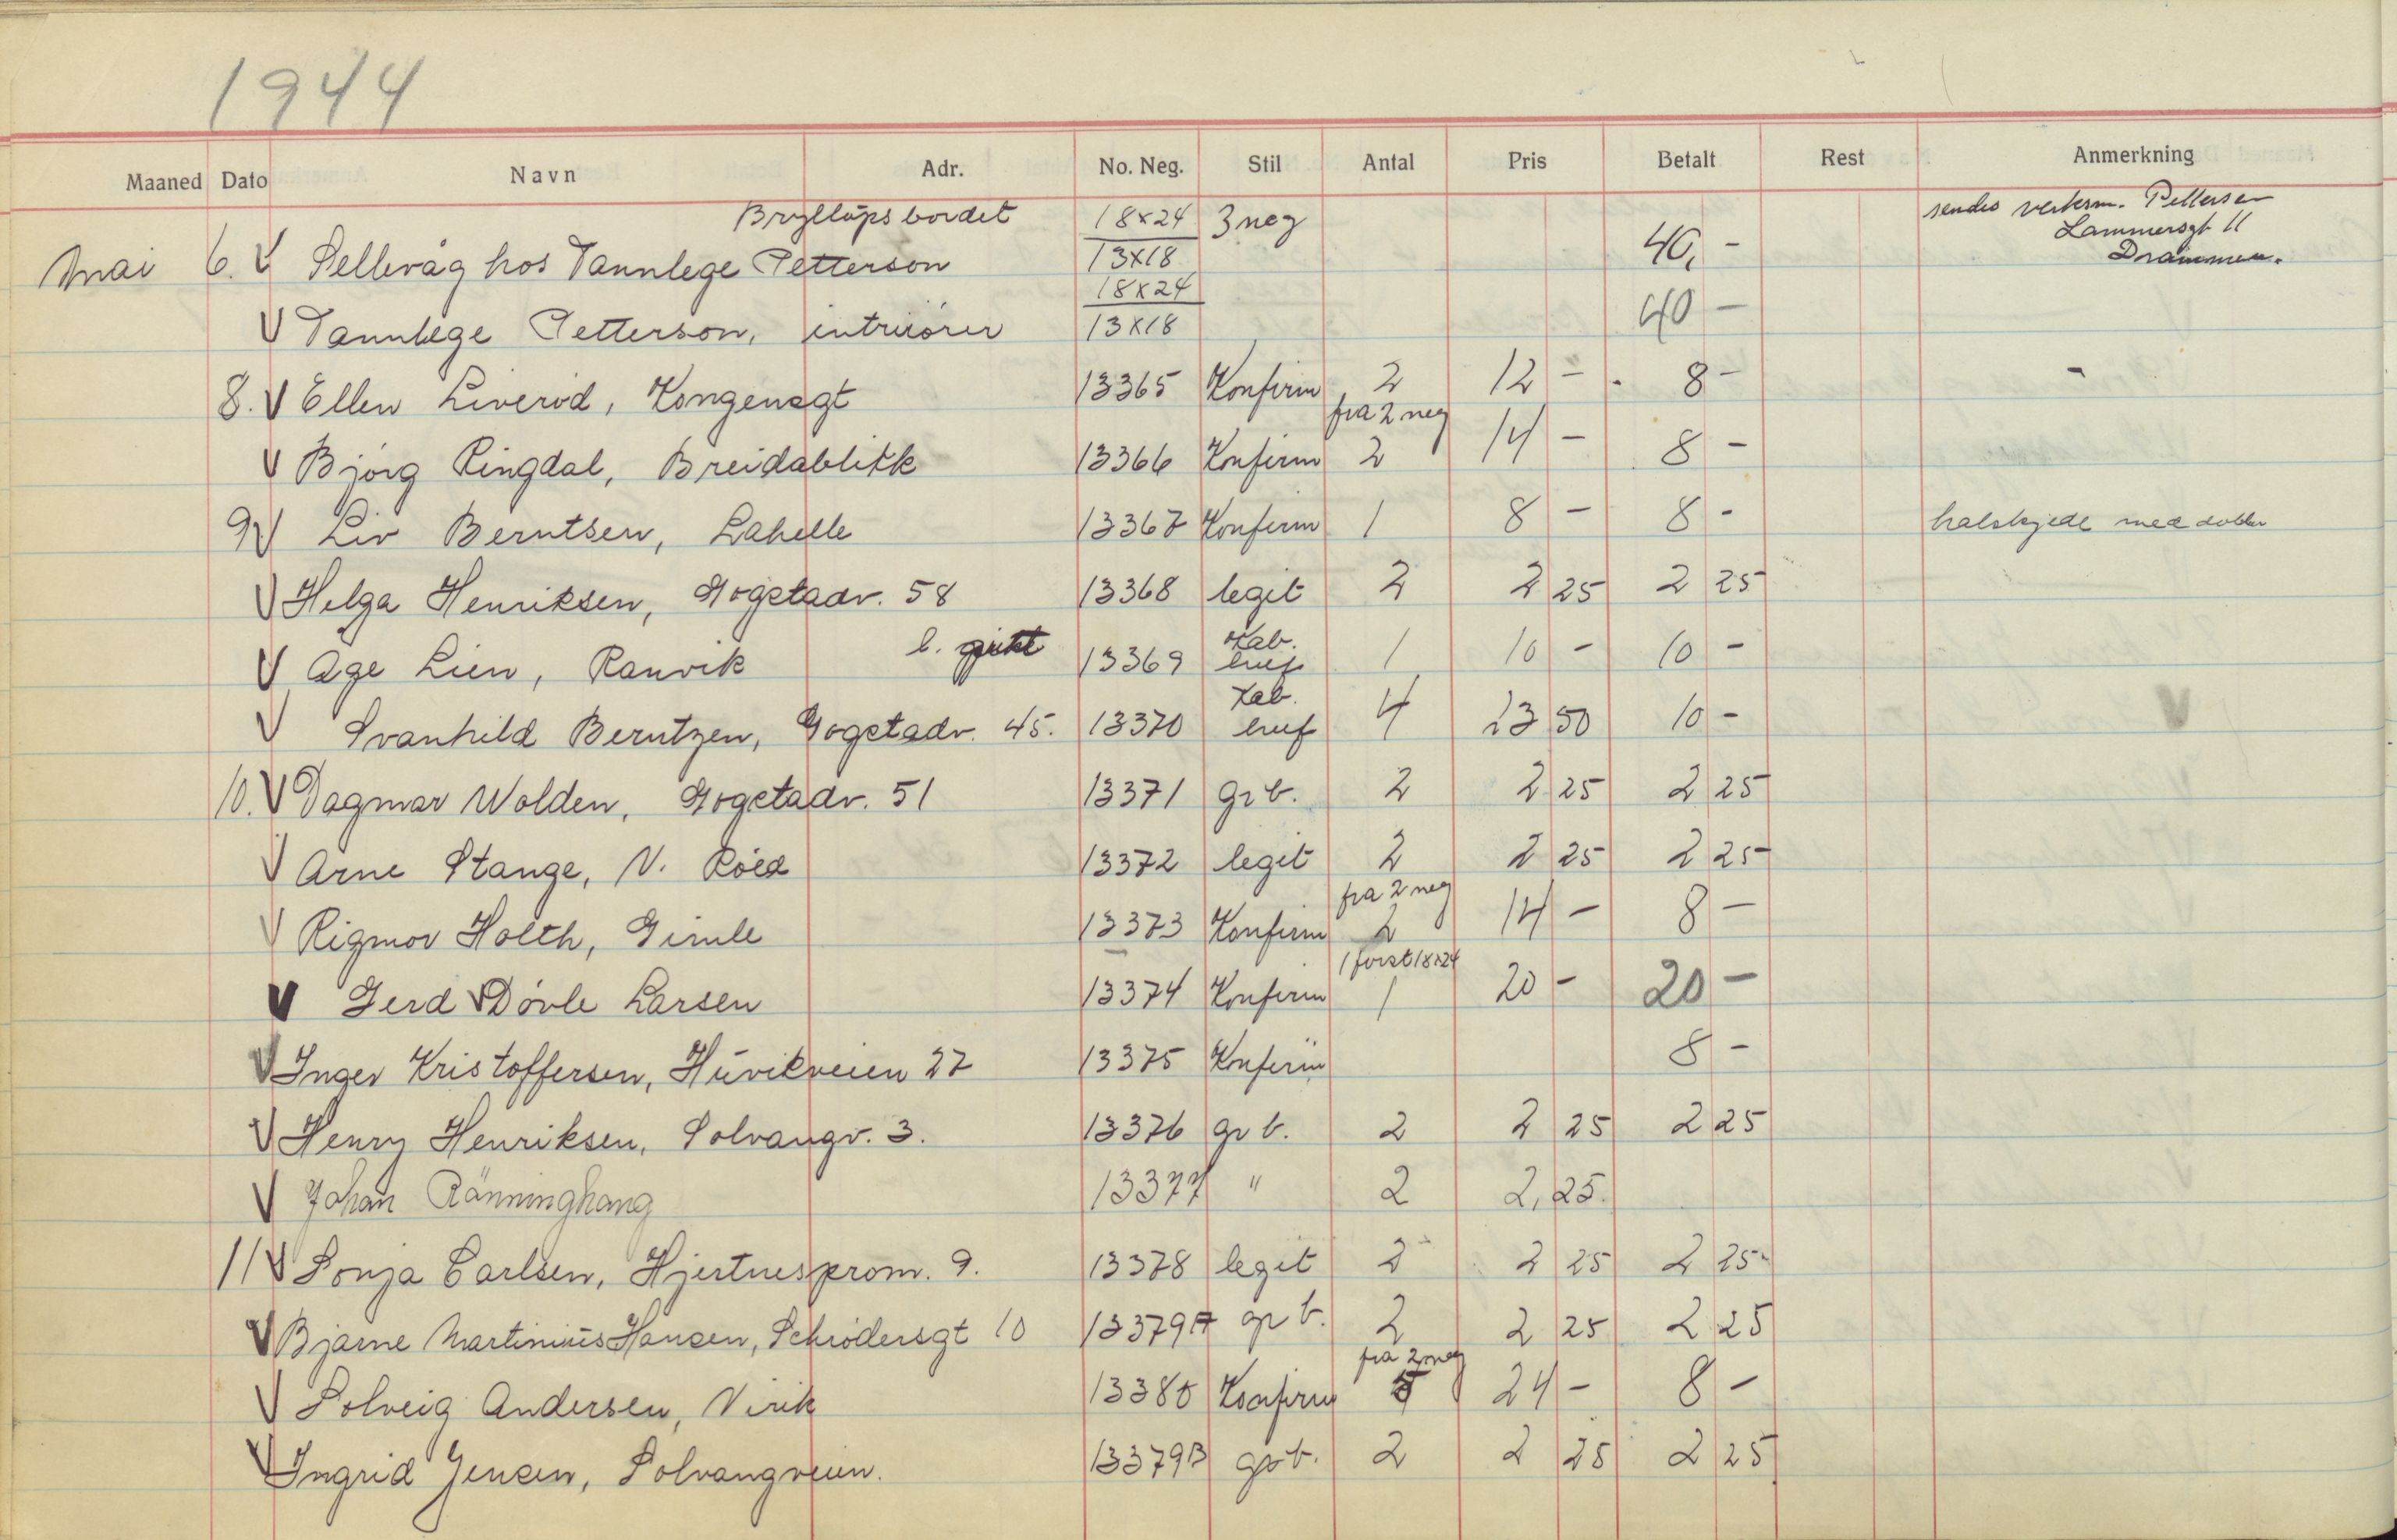 1944
Maaned Dato Navn Adr. No. Neg. Stil Antal Pris Betalt Rest Anmerkning
Bryllupsbordet 18x24 3 neg sendes verksm. Pettersen
Lammersgt 11
Mai 6. V Sellevåg hos Tannlege Petterson 13x18 40,- Drammen.
18x24
V Tannlege Petterson, intriörer 13x18 40 -
8. V Ellen Liveröd, Kongensgt 13365 Konfirm 2 12 - 8 - -
fra 2 neg
V Björg Ringdal, Breidablikk 13366 Konfirm 2 14 - 8 -
9 V Liv Berntsen, Lahelle 13367 Konfirm 1 8 - 8 - halskjede med
V Helga Henriksen, Gogstadv. 58 13368 legit 2 2 25 2 25
Kab.
V Åge Lien, Ranvik b. 13369 1 10 - 10 -
Kab.
V Svanhild Berntzen, Gogstadv. 45. 13370 4 13 50 10 - V
10. V Dagmar Wolden, Gogstadv. 51 13371 gr b. 2 2 25 2 25
V Arne Stange, N. Röed 13372 legit 2 2 25 2 25
fra 2 neg
V Rigmor Holth, Gimle 13373 Konfirm 2 14 - 8 -
1 forst 18x24
V Gerd Dövle Larsen 13374 Konfirm 1 20 - 20 -
V Inger Kristoffersen, Huvikveien 27 13375 Konfirm 8 -
V Henry Henriksen, Solvangv. 3. 13376 gr b. 2 2 25 2 25
V Johan Ränninghang 13377 " 2 2,25.
11 V Sonja Carlsen, Hjertnesprom. 9. 13378 legit 2 2 25 2 25
V Bjarne Martinius Hansen, Schrödersgt 10 13379A gr b. 2 2 25 2 25
fra 2 neg
V Solveig Andersen, Virik 13380 Konfirm 5 24 - 8 -
V Ingrid Jensen, Solvangveien. 13379B gr b. 2 2 25 2 25